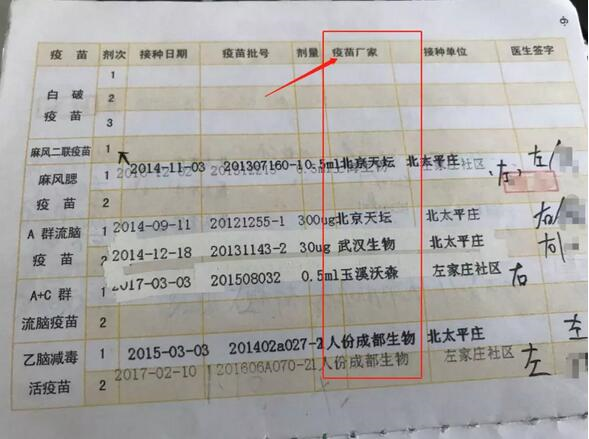 疫 苗 剂次 接种日期 疫苗批号 剂量 疫苗厂家 接种单位 医生签字
1
白 破 2
疫 苗
3
麻风二联疫苗 1
2014-11-03 201307160-1 0.5ml 北京天坛 北太平庄 左
麻风腮 1 左家庄社区 左
疫 苗 2
A 群流脑 1 2014-09-11 20121255-1 300ug 北京天坛 北太平庄 右
疫 苗 2 2014-12-18 20131143-2 30ug 武汉生物 北太平庄 右
A+C 群 1 2017-03-03 201508032 0.5ml 玉溪沃森 左家庄社区 右
流脑疫苗 2
乙脑减毒 1 2015-03-03 201402a027-2 1人份 成都生物 北太平庄 左
活疫苗 2 2017-02-10 201606A070-2 1人份 成都生物 左家庄社区 左